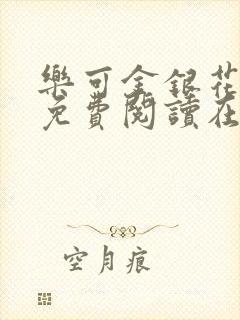 樂可金銀花
免費閱讀在
空月痕